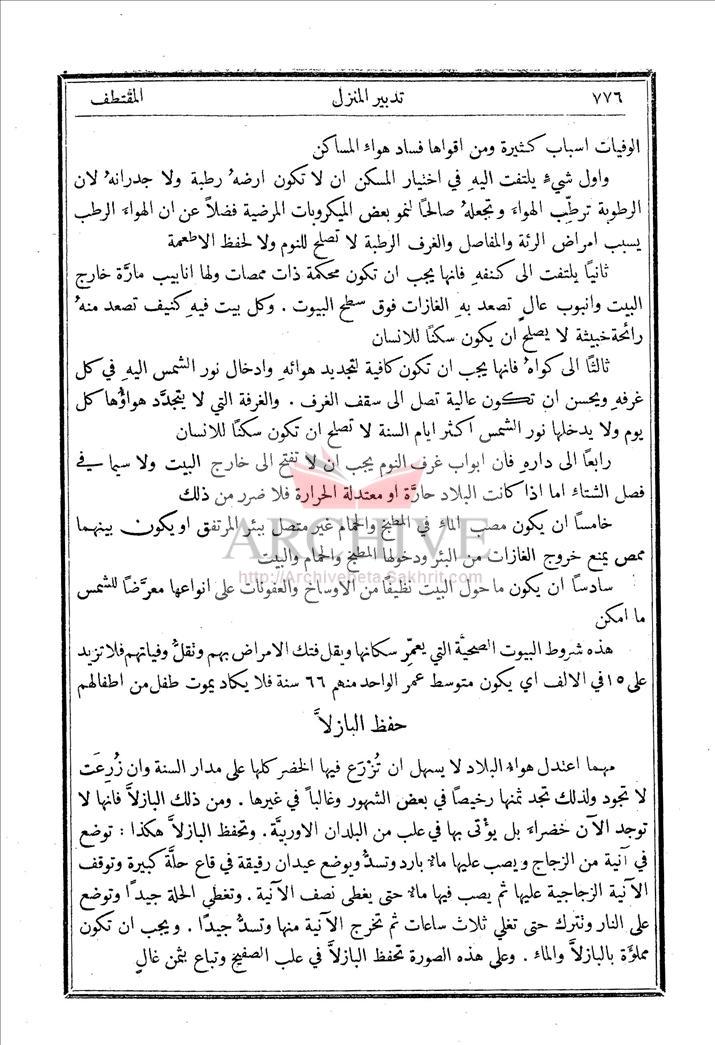 ٧٧٦ تدبير المنزل المقتطف
الوفيات اسباب كثيرة ومن اقواها فساد هواء المساكن
واول شيءٍ يلتفت اليهِ في اختيار المسكن ان لا تكون ارضهُ رطبة ولا جدرانهُ لان
الرطوبة ترطّب الهواء وتجعلهُ صالحًا لنمو بعض الميكروبات المرضية فضلاً عن ان الهواء الرطب
يسبب امراض الرئة والمفاصل والغرف الرطبة لا تصلح للنوم ولا لحفظ الاطعمة
ثانيًا يلتفت الى كنفهِ فانها يجب ان تكون محكمة ذات ممصات ولها انابيب مارَّة خارج
البيت وانبوب عالٍ تصعد بهِ الغازات فوق سطح البيوت . وكل بيت فيهِ كنيف تصعد منهُ
رائحة خبيثة لا يصلح ان يكون سكنًا للانسان
ثالثًا الى كواهُ فانها يجب ان تكون كافية لتجديد هوائهِ وادخال نور الشمس اليهِ في كل
غرفهِ ويحسن ان تكون عالية تصل الى سقف الغرف . والغرفة التي لا يتجدَّد هواؤها كل
يوم ولا يدخلها نور الشمس اكثر ايام السنة لا تصلح ان تكون سكنًا للانسان
رابعًا الى دارهِ فان ابواب غرف النوم يجب ان لا تفتح الى خارج البيت ولا سيما في
فصل الشتاء اما اذا كانت البلاد حارَّة او معتدلة الحرارة فلا ضرر من ذلك
خامسًا ان يكون مصب الماء في المطبخ والحمام غير متصل ببئر المرتفق او يكون بينهما
ممص يمنع خروج الغازات من البئر ودخولها المطبخ والحمام والبيت
سادسًا ان يكون ما حول البيت نظيفًا من الاوساخ والعفونات على انواعها معرَّضًا للشمس
ما امكن
هذه شروط البيوت الصحيَّة التي يعمِّر سكانها ويقل فتك الامراض بهم وتقلُّ وفياتهم فلا تزيد
على ١٥ في الالف اي يكون متوسط عمر الواحد منهم ٦٦ سنة فلا يكاد يموت طفل من اطفالهم
حفظ البازلاَّ
مهما اعتدل هواء البلاد لا يسهل ان تُزْرَع فيها الخضر كلها على مدار السنة وان زُرِعَت
لا تجود ولذلك تجد ثمنها رخيصًا في بعض الشهور وغالياً في غيرها . ومن ذلك البازلاَّ فانها لا
توجد الآن خضراء بل يؤتى بها في علب من البلدان الاوربيَّة . وتحفظ البازلاَّ هكذا : توضع
في آنية من الزجاج ويصب عليها ماء بارد وتسدُّ ويوضع عيدان رقيقة في قاع حلَّة كبيرة وتوقف
الآنية الزجاجية عليها ثم يصب فيها ماء حتى يغطى نصف الآنية . وتغطى الحلة جيدًا وتوضع
على النار وتترك حتى تغلي ثلاث ساعات ثم تخرج الآنية منها وتسدُّ جيدًا . ويجب ان تكون
مملوَّة بالبازلاَّ والماء . وعلى هذه الصورة تحفظ البازلاَّ في علب الصفيح وتباع بثمن غالٍ
ARCHIVE
http://Archivebeta.Sakhrit.com